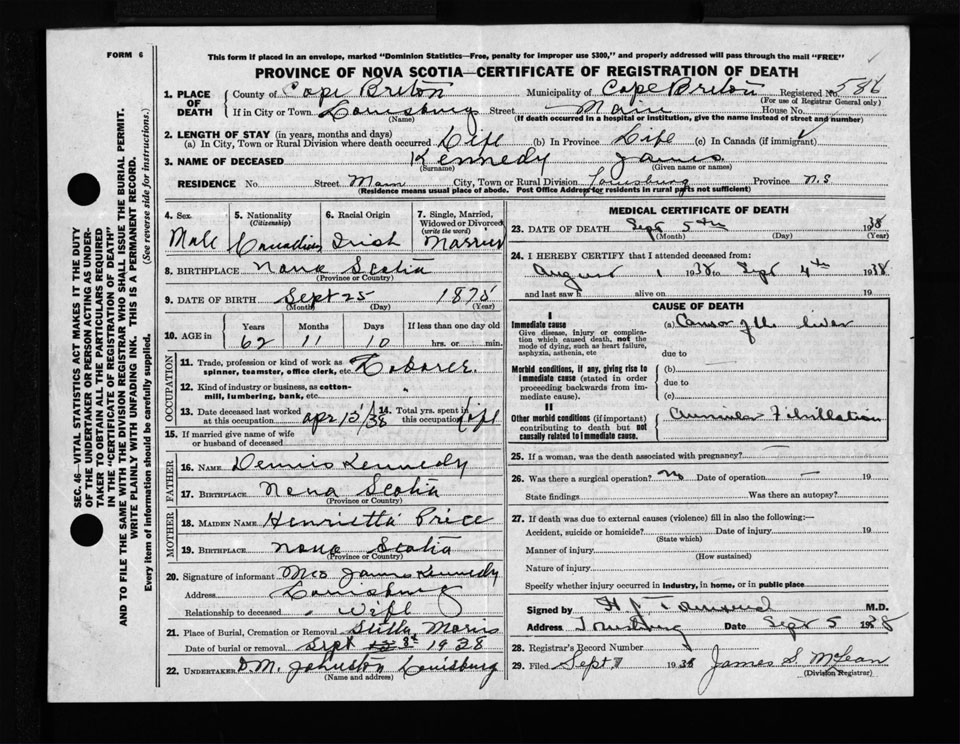 FORM 6
This form if placed in an envelope, marked "Dominion Statistics—Free, penalty for improper use $300," and properly addressed will pass through the mail "FREE"
PROVINCE OF NOVA SCOTIA—CERTIFICATE OF REGISTRATION OF DEATH
1. PLACE OF DEATH County of Cape Breton Municipality of Cape Breton Registered No.
(For use of Registrar General only)
If in City or Town Louisburg Street Main House No.
(Name) (If death occurred in a hospital or institution, give the name instead of street and number)
2. LENGTH OF STAY (in years, months and days)
(a) In City, Town or Rural Division where death occurred Life (b) In Province Life (c) In Canada (if immigrant)
3. NAME OF DECEASED Kennedy James
(Surname) (Given name or names)
RESIDENCE No. Street Main City, Town or Rural Division Louisburg Province N.S
(Residence means usual place of abode. Post Office Address for residents in rural parts not sufficient)
4. Sex 5. Nationality (Citizenship) 6. Racial Origin 7. Single, Married, Widowed or Divorced (write the word)
Male Canadian Irish Married
8. BIRTHPLACE Nova Scotia
(Province or Country)
9. DATE OF BIRTH Sept 25 1875
(Month) (Day) (Year)
10. AGE in Years Months Days If less than one day old
62 11 10 hrs. or min.
OCCUPATION
11. Trade, profession or kind of work as spinner, teamster, office clerk, etc. Laborer
12. Kind of industry or business, as cotton-mill, lumbering, bank, etc. "
13. Date deceased last worked at this occupation 14. Total yrs. spent in this occupation Life
15. If married give name of wife or husband of deceased
FATHER
16. NAME Dennis Kennedy
17. BIRTHPLACE Nova Scotia
(Province or Country)
MOTHER
18. MAIDEN NAME Henrietta Price
19. BIRTHPLACE Nova Scotia
(Province or Country)
20. Signature of informant Mrs James Kennedy
Address Louisburg
Relationship to deceased Wife
21. Place of Burial, Cremation or Removal Stella Maris
Date of burial or removal Sept 1938
22. UNDERTAKER D.M. Johnston Louisburg
(Name and address)
MEDICAL CERTIFICATE OF DEATH
23. DATE OF DEATH Sept 5th 1938
(Month) (Day) (Year)
24. I HEREBY CERTIFY that I attended deceased from:
August 1 1938 to Sept 4th 1938
and last saw h alive on 19
CAUSE OF DEATH
I
Immediate cause (a) Cancer of the liver
Give disease, injury or complication which caused death, not the mode of dying, such as heart failure, asphyxia, asthenia, etc
due to
Morbid conditions, if any, giving rise to immediate cause (stated in order proceeding backwards from immediate cause).
(b)
due to
(c)
II
Other morbid conditions (if important) contributing to death but not causally related to immediate cause.
Auricular Fibrillation
25. If a woman, was the death associated with pregnancy?
26. Was there a surgical operation? No Date of operation — 19
State findings Was there an autopsy?
27. If death was due to external causes (violence) fill in also the following:—
Accident, suicide or homicide? Date of injury 19
(State which)
Manner of injury
(How sustained)
Nature of injury
Specify whether injury occurred in industry, in home, or in public place
Signed by M.D.
Address Louisburg Date Sept 5 1938
28. Registrar's Record Number
29. Filed Sept 7 1938 James S. McLean
(Division Registrar)
SEC. 46—VITAL STATISTICS ACT MAKES IT THE DUTY
OF THE UNDERTAKER OR PERSON ACTING AS UNDER-
TAKER TO OBTAIN ALL THE PARTICULARS REQUIRED
IN THE "CERTIFICATE OF REGISTRATION OF DEATH"
AND TO FILE THE SAME WITH THE DIVISION REGISTRAR WHO SHALL ISSUE THE BURIAL PERMIT.
WRITE PLAINLY WITH UNFADING INK. THIS IS A PERMANENT RECORD.
Every item of information should be carefully supplied. (See reverse side for instructions.)